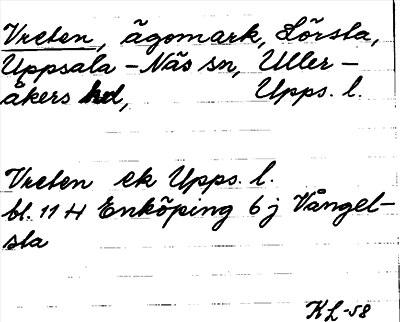 Vreten, ägomark, Sörsta,
Uppsala-Näs sn, Uller-
åkers hd, Upps. l.
Vreten ek Upps. l.
bl. 11 H Enköping 6 j Vångel-
sta
KL-58